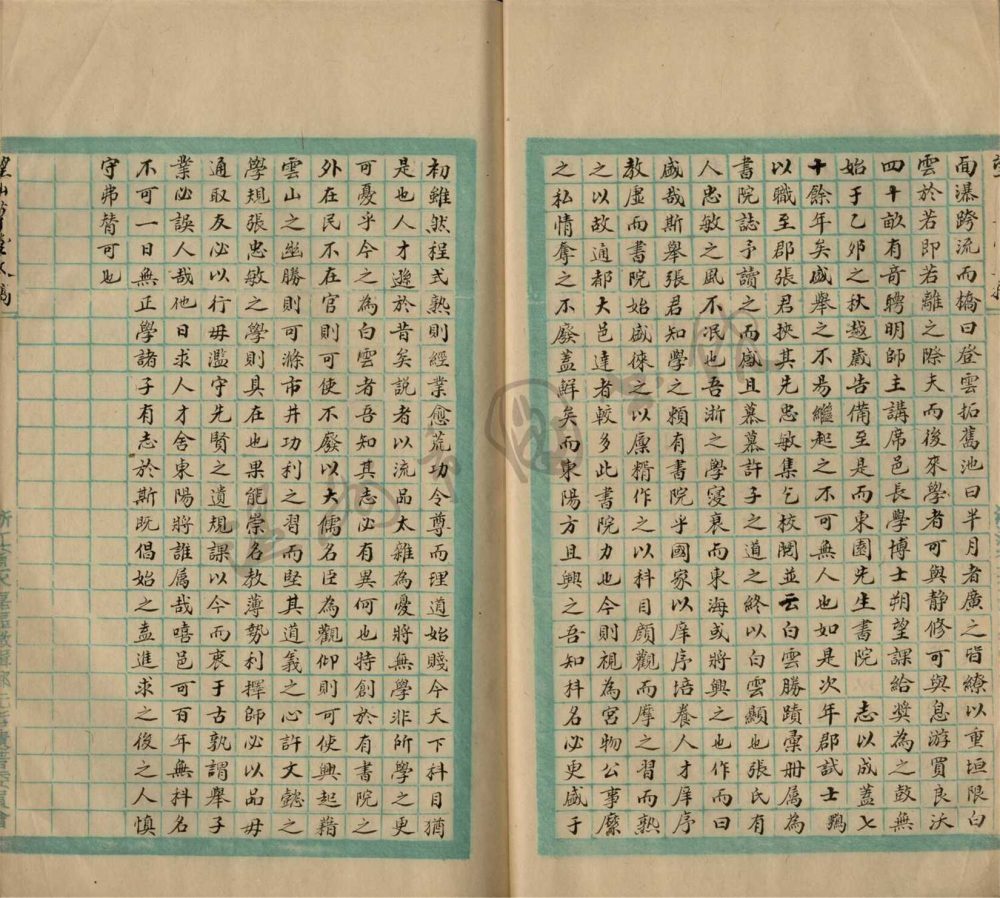 面瀑跨流而橋曰登雲拓舊池曰半月者廣之皆繚以重垣限白
雲於若即若離之際夫而後來學者可與静修可與息游買良沃
四十畝有奇聘明師主講席邑長學博士朔望課給奬為之鼓無
始于乙夘之秋越嵗告備至是而東園先生書院 志以成蓋七
十餘年矣盛舉之不易繼起之不可無人也如是次年郡試士鵷
以職至郡張君挾其先忠敏集乞校閱並云白雲勝蹟彚册属為
書院誌予讀之而感且慕慕許子之道之終以白雲顯也張氏有
人忠敏之風不泯也吾浙之學寖衰而東海或將興之也作而曰
盛哉斯舉張君知學之頼有書院乎國家以庠序培養人才庠序
教虚而書院始盛徠之以廪糈作之以科目顔觀而摩之習而熟
之以故通都大邑達者較多此書院力也今則視為宮物公事縻
之私情奪之不廢蓋鮮矣而東陽方且興之吾知科名必更盛于
初雖然程式熟則經業愈荒功令尊而理道始賤今天下科目猶
是也人才遜於昔矣説者以流品太雜為憂將無學非所學之更
可憂乎今之為白雲者吾知其志必有異何也特創於有書院之
外在民不在官則可使不廢以大儒名臣為觀仰則可使興起藉
雲山之幽勝則可滌市井功利之習而堅其道義之心許文懿之
學規張忠敏之學則具在也果能崇名教薄勢利擇師必以品毋
通取友必以行毋濫守先賢之遺規課以今而衷于古孰謂舉子
業必誤人哉他日求人才舍東陽將誰属哉嘻邑可百年無科名
不可一日無正學諸子有志於斯既倡始之盍進求之後之人慎
守弗替可也